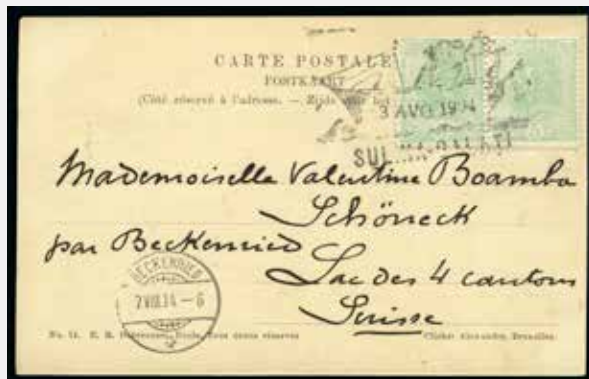 CARTE POSTALE
POSTKAART
(Côté réservé à l'adresse. — Zijde voor het
3 AVG 1904
SULINA-GALATI
Mademoiselle Valentine Boamba
Schöneck
par Beckenried
Lac des 4 cantons
Suisse
BECKENRIED
7 VIII.14 – 6
No. 11. E. R. Bruxelles. Tous droits réservés
Cliché Alexandre, Bruxelles.